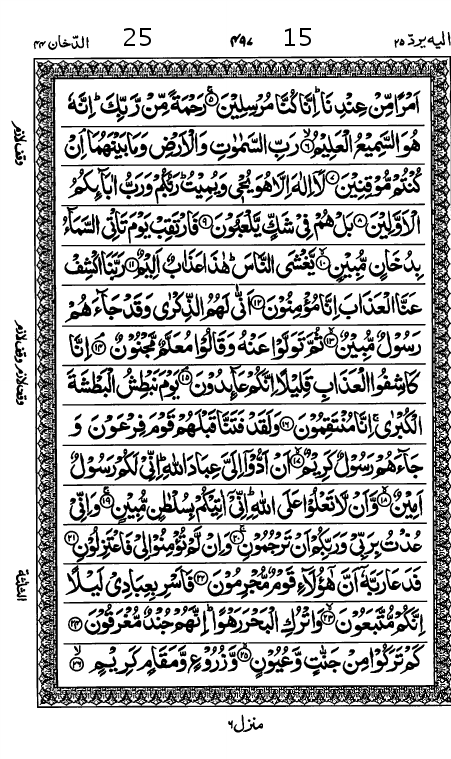 اليه يردّ ٢٥ 15 ٤٩٧ 25 الدّخان ٤٤
اَمْرًا مِّنْ عِنْدِنَا ؕ اِنَّا كُنَّا مُرْسِلِيْنَ ۚ‏﴿۵﴾ رَحْمَةً مِّنْ رَّبِّكَ ؕ اِنَّهٗ
هُوَ السَّمِيْعُ الْعَلِيْمُ ۙ‏﴿۶﴾ رَبِّ السَّمٰوٰتِ وَالْاَرْضِ وَمَا بَيْنَهُمَا ۘ اِنْ
كُنْتُمْ مُّوْقِنِيْنَ ﴿۷﴾ لَاۤ اِلٰهَ اِلَّا هُوَ يُحْيٖ وَيُمِيْتُ ؕ رَبُّكُمْ وَرَبُّ اٰبَآئِكُمُ
الْاَوَّلِيْنَ ﴿۸﴾ بَلْ هُمْ فِيْ شَكٍّ يَّلْعَبُوْنَ ﴿۹﴾ فَارْتَقِبْ يَوْمَ تَاْتِى السَّمَآءُ
بِدُخَانٍ مُّبِيْنٍ ۙ‏﴿۱۰﴾ يَّغْشَى النَّاسَ ؕ هٰذَا عَذَابٌ اَلِيْمٌ ﴿۱۱﴾ رَبَّنَا اكْشِفْ
عَنَّا الْعَذَابَ اِنَّا مُؤْمِنُوْنَ ﴿۱۲﴾ اَنّٰى لَهُمُ الذِّكْرٰى وَقَدْ جَآءَهُمْ
رَسُوْلٌ مُّبِيْنٌ ۙ‏﴿۱۳﴾ ثُمَّ تَوَلَّوْا عَنْهُ وَقَالُوْا مُعَلَّمٌ مَّجْنُوْنٌ ۘ‏﴿۱۴﴾ اِنَّا
كَاشِفُوا الْعَذَابِ قَلِيْلًا اِنَّكُمْ عَآئِدُوْنَ ۘ‏﴿۱۵﴾ يَوْمَ نَبْطِشُ الْبَطْشَةَ
الْكُبْرٰى ۚ اِنَّا مُنْتَقِمُوْنَ ﴿۱۶﴾ وَلَقَدْ فَتَنَّا قَبْلَهُمْ قَوْمَ فِرْعَوْنَ وَ
جَآءَهُمْ رَسُوْلٌ كَرِيْمٌ ۙ‏﴿۱۷﴾ اَنْ اَدُّوْۤا اِلَيَّ عِبَادَ اللّٰهِ ؕ اِنِّيْ لَكُمْ رَسُوْلٌ
اَمِيْنٌ ۙ‏﴿۱۸﴾ وَّاَنْ لَّا تَعْلُوْا عَلَى اللّٰهِ ؕ اِنِّيْۤ اٰتِيْكُمْ بِسُلْطٰنٍ مُّبِيْنٍ ۚ‏﴿۱۹﴾ وَاِنِّيْ
عُذْتُ بِرَبِّيْ وَرَبِّكُمْ اَنْ تَرْجُمُوْنِ ۚ‏﴿۲۰﴾ وَاِنْ لَّمْ تُؤْمِنُوْا لِيْ فَاعْتَزِلُوْنِ ﴿۲۱﴾
فَدَعَا رَبَّهٗۤ اَنَّ هٰۤؤُلَآءِ قَوْمٌ مُّجْرِمُوْنَ ﴿۲۲﴾ فَاَسْرِ بِعِبَادِيْ لَيْلًا
اِنَّكُمْ مُّتَّبَعُوْنَ ۙ‏﴿۲۳﴾ وَاتْرُكِ الْبَحْرَ رَهْوًا ؕ اِنَّهُمْ جُنْدٌ مُّغْرَقُوْنَ ﴿۲۴﴾
كَمْ تَرَكُوْا مِنْ جَنّٰتٍ وَّعُيُوْنٍ ۙ‏﴿۲۵﴾ وَّزُرُوْعٍ وَّمَقَامٍ كَرِيْمٍ ۙ‏﴿۲۶﴾
وقف لازم
وقف لازم وقف لازم
الثلثة
منزل ٦